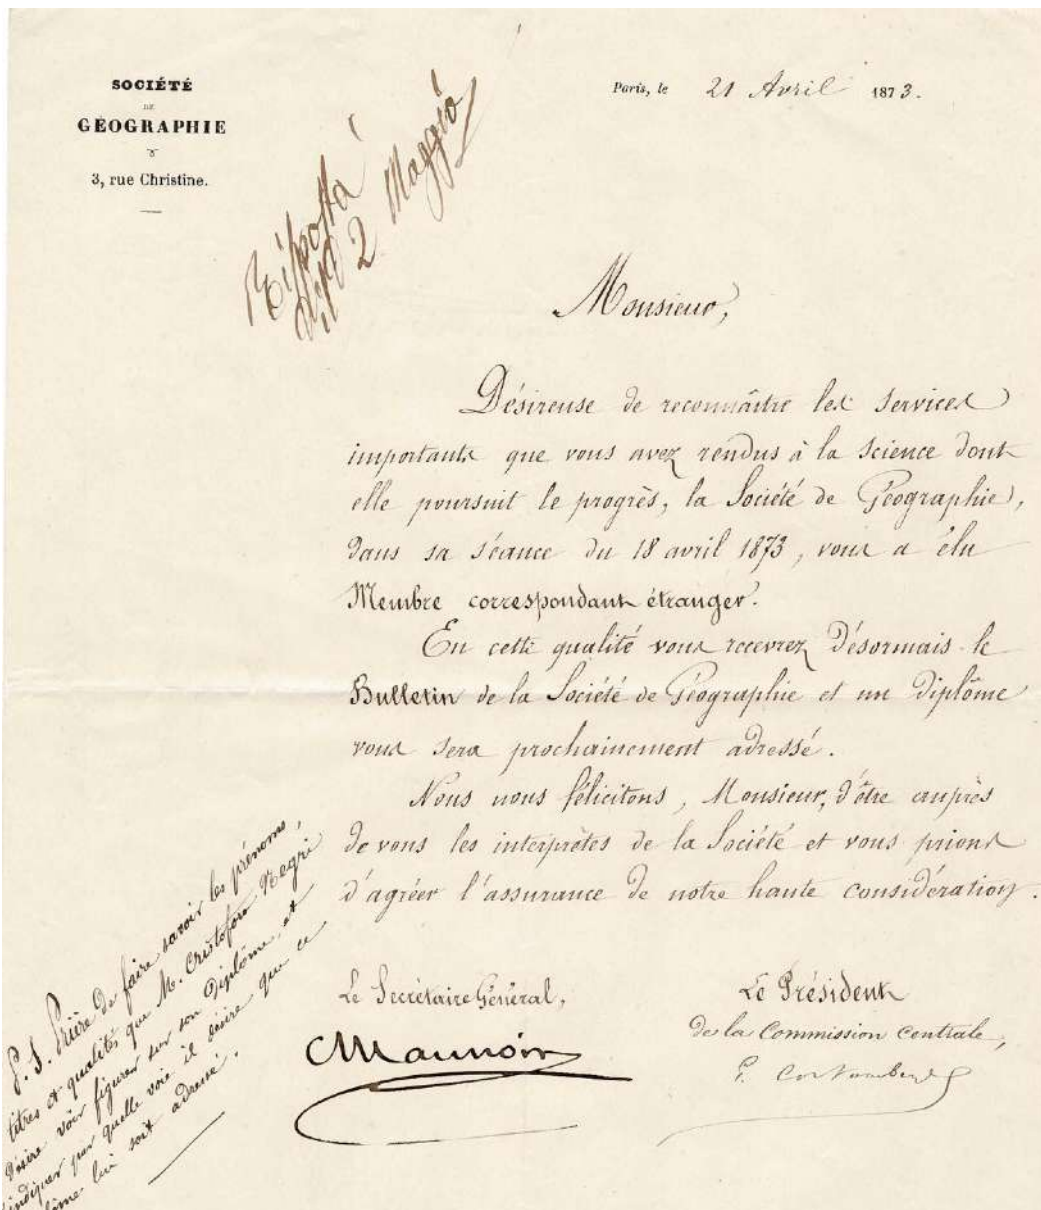 SOCIÉTÉ
DE
GÉOGRAPHIE
3, rue Christine.
Paris, le 21 Avril 1873.
Risposta
il 2 Maggio
Monsieur,
Désireuse de reconnaître les services
importants que vous avez rendus à la science dont
elle poursuit le progrès, la Société de Géographie,
dans sa séance du 18 avril 1873, vous a élu
Membre correspondant étranger.
En cette qualité vous recevrez désormais le
Bulletin de la Société de Géographie et un diplôme
vous sera prochainement adressé.
Nous nous félicitons, Monsieur, d'être auprès
de vous les interprètes de la Société et vous prions
d'agréer l'assurance de notre haute considération.
Le Secrétaire Général,
CMaunoir
Le Président
de la Commission Centrale,
E. Cortambert
P. S. Prière de faire savoir les prénoms,
titres et qualités que M. Cristoforo Negri
désire voir figurer sur son Diplôme, et
indiquer par quelle voie il désire que ce
lui soit adressé.